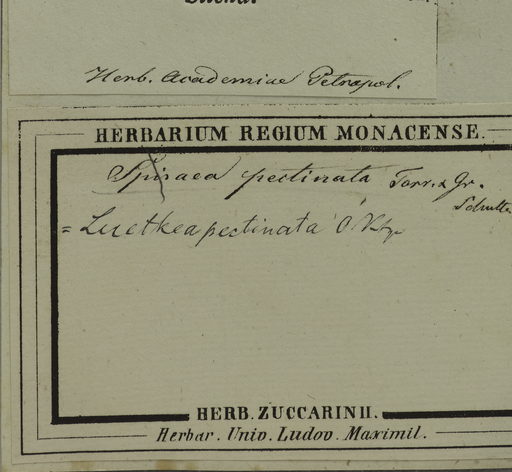 Herb. Academiae Petropol.
HERBARIUM REGIUM MONACENSE.
Spiraea pectinata Torr. & Gr.
= Luetkea pectinata O. Ktze
HERB. ZUCCARINII.
Herbar. Univ. Ludov. Maximil.